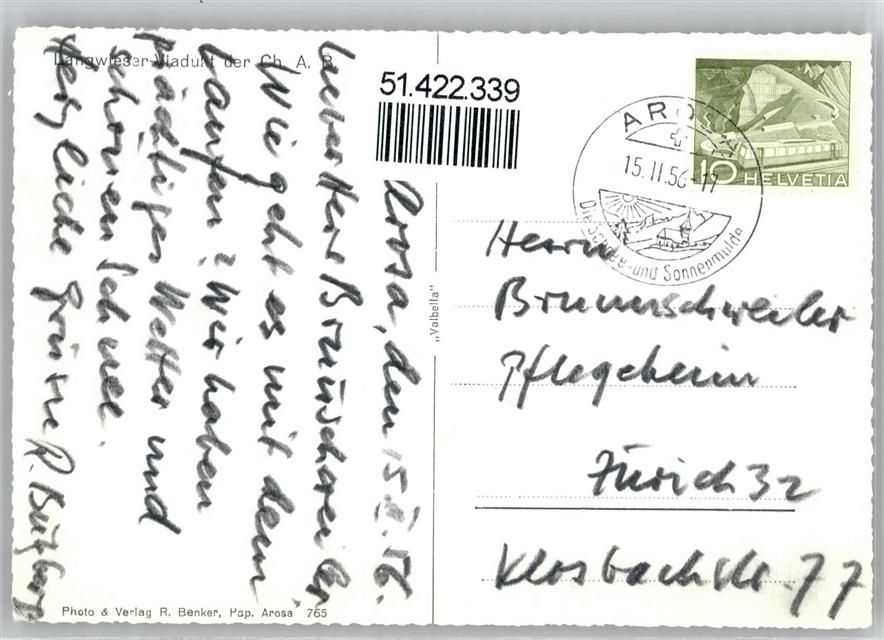 Langwieser-Viadukt der Ch. A. B.
51.422.339
Arosa, den 15. II. 56.
Lieber Herr Brunschweiler,
Wie geht es mit dem
Laufen? Wir haben
prächtiges Wetter und
schönen Schnee.
Herzliche Grüsse
Photo & Verlag R. Benker, Pap. Arosa 765
„Valbella"
AROSA
15.II.56-17
Die Schnee-und Sonnenmulde
10 HELVETIA
Herrn
Brunnschweiler
Pflegeheim
Zürich 32
Klosbachstr. 77